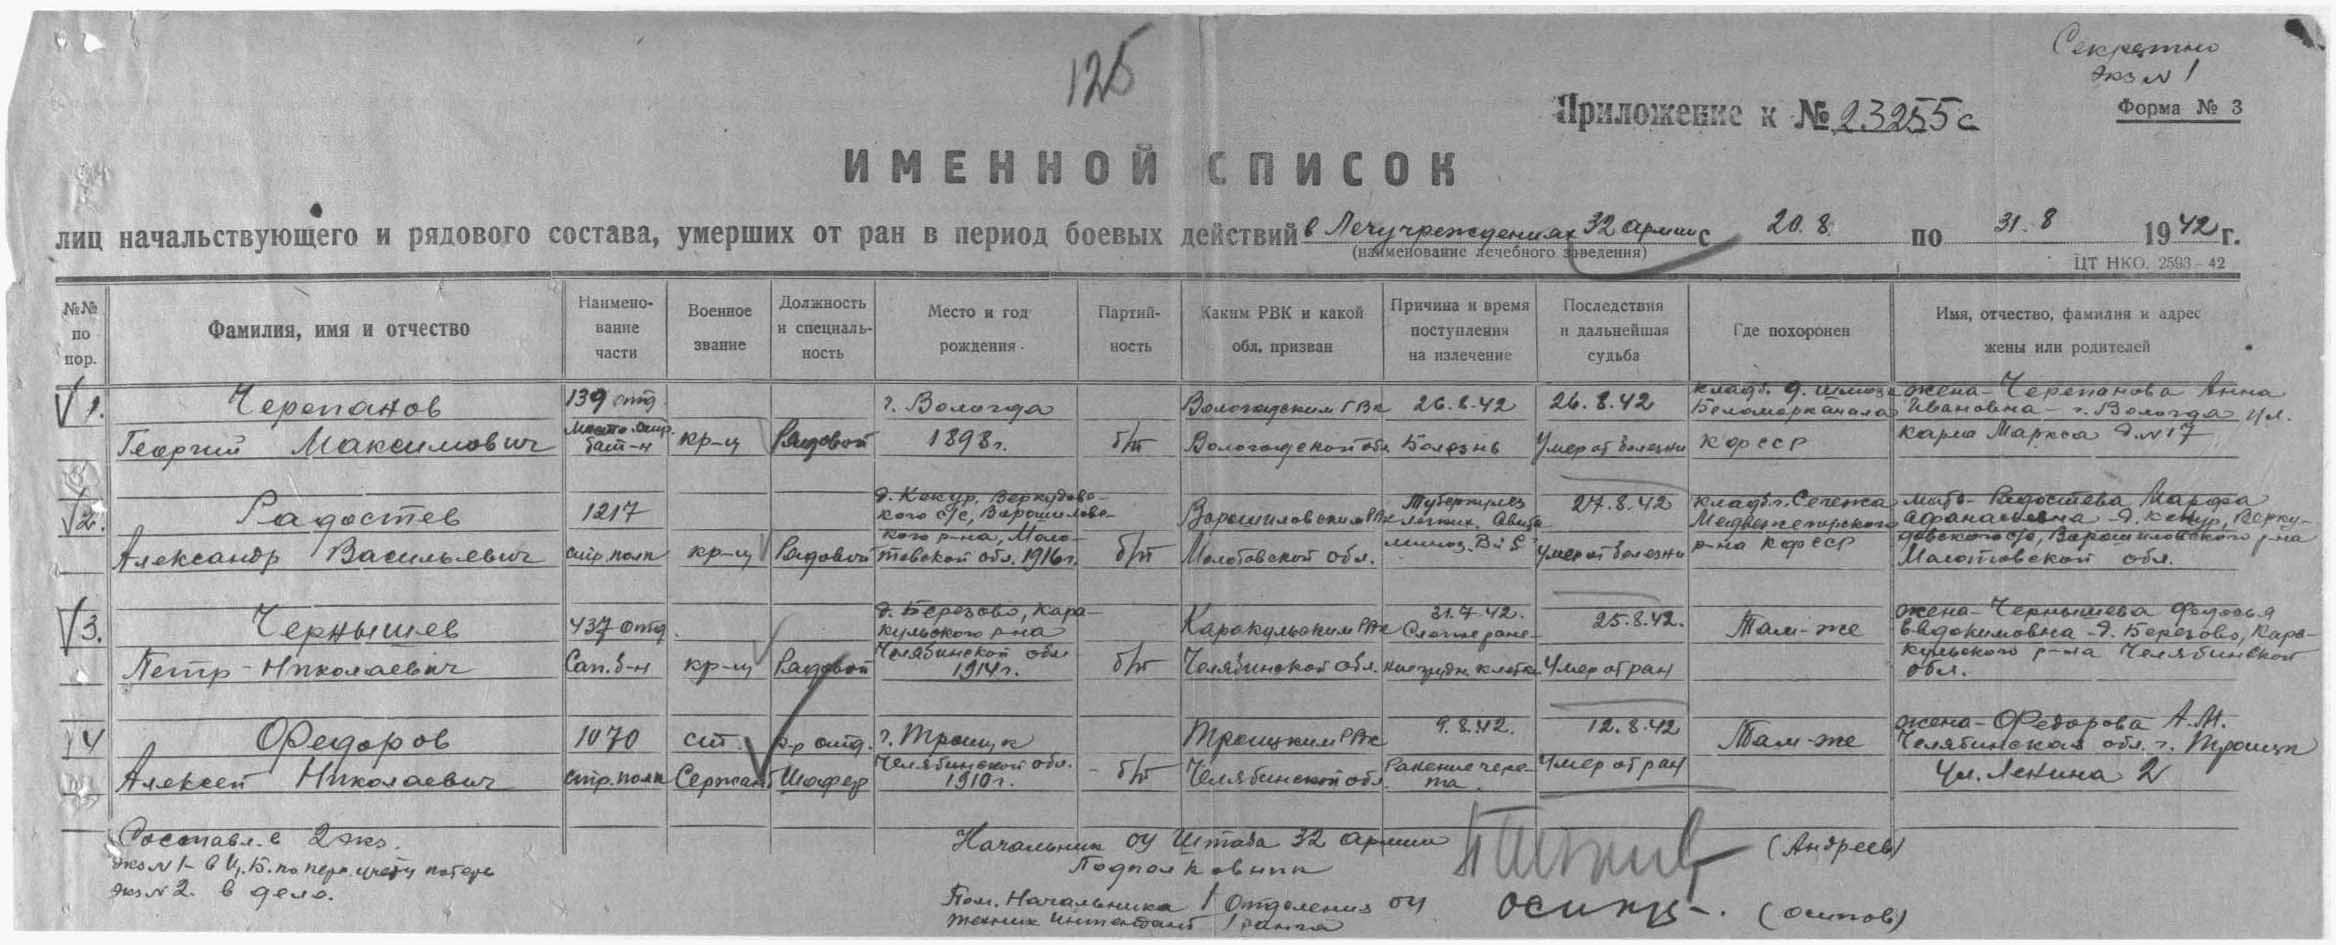 125
Секретно
Экз N 1
Форма № 3
Приложение к № 23255с
ИМЕННОЙ СПИСОК
лиц начальствующего и рядового состава, умерших от ран в период боевых действий в Лечучреждениях 32 армии с 20.8 по 31.8 1942 г.
(наименование лечебного заведения)
ЦТ НКО. 2593–42
№№ по пор.
Фамилия, имя и отчество
Наимено-
вание
части
Военное
звание
Должность
и специаль-
ность
Место и год
рождения
Партий-
ность
Каким РВК и какой
обл. призван
Причина и время
поступления
на излечение
Последствия
и дальнейшая
судьба
Где похоронен
Имя, отчество, фамилия и адрес
жены или родителей
1.
Черепанов
Георгий Максимович
139 отд.
бат-н
кр-ц
Рядовой
г. Вологда
1898г.
б/п
Вологодским ГВК
Вологодской обл.
26.8.42
Болезнь
26.8.42
Умер от болезни
кладб. д. шлюза
Беломорканала
КФССР
жена- Черепанова Анна
Ивановна - г. Вологда ул.
Карла Маркса д. N 17
2.
Радостев
Александр Васильевич
1217
стр. полк
кр-ц
Рядовой
д. Кекур, Веркудов-
кого с/с, Ворошилов-
кого р-на, Моло-
товской обл. 1916г.
б/п
Ворошиловским РВК
Молотовской обл.
Туберкулез
легких. Авита-
миноз
27.8.42
Умер от болезни
кладб. г. Сегежа
Медвежегорского
р-на КФССР
мать- Радостева Марфа
Афанасьевна - д. Кекур, Верку-
довского с/с, Ворошиловского р-на
Молотовской обл.
3.
Чернышев
Петр Николаевич
437 отд.
Сап. б-н
кр-ц
Рядовой
д. Березово, Кара-
кульского р-на
Челябинской обл.
1914г.
б/п
Каракульским РВК
Челябинской обл.
31.7.42.
Слепое ране-
ние грудн. клетки
25.8.42.
Умер от ран
Там-же
жена- Чернышева Федосья
Евдокимовна - д. Березово, Кара-
кульского р-на Челябинской
обл.
4
Федоров
Алексей Николаевич
1070
стр. полк
ст.
Сержант
к-р отд.
Шофер
г. Троицк
Челябинской обл.
1910г.
б/п
Троицким РВК
Челябинской обл.
9.8.42.
Ранение чере-
па.
12.8.42
Умер от ран
Там-же
жена- Федорова А.М.
Челябинская обл. г. Троицк
Ул. Ленина 2
Составл. в 2 экз.
Экз N 1- в Ц.Б. по перс. учету потерь
Экз N 2. в дело.
Начальник ОУ Штаба 32 армии
Подполковник
(Андреев)
Пом. Начальника 1 Отделения ОУ
техник интендант 1 ранга
(Осипов)